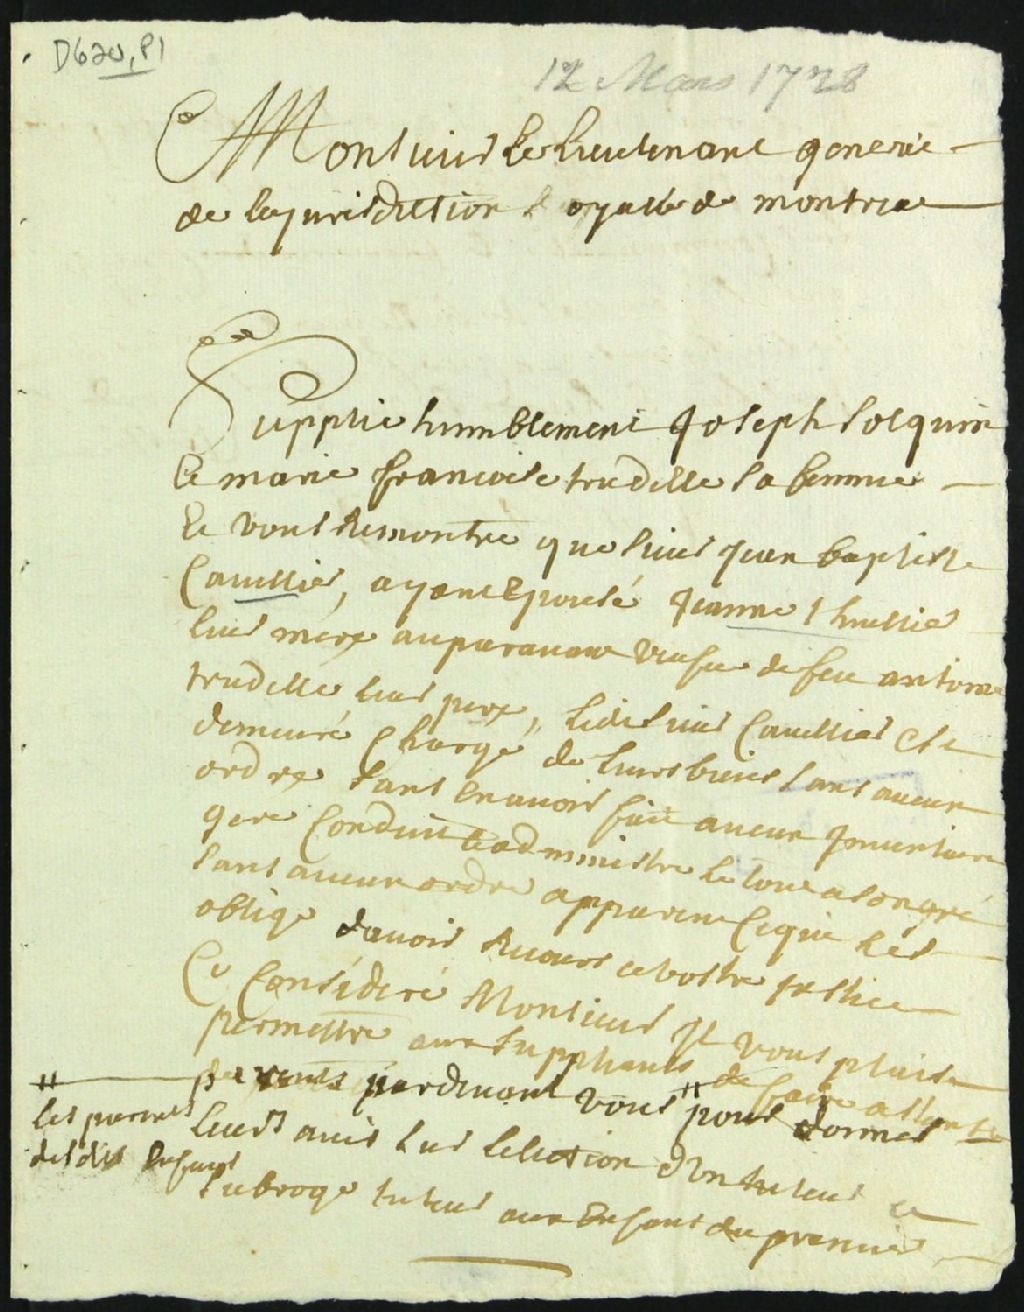 D620, P1
12 Mars 1728
Monsieur Le Lieutenant general
de la jurisdiction Royalle de montreal
Supplie humblement Joseph
Et marie francoise trudelle sa femme
Et vous Remontre que sieur jean baptiste
Cauellier, ayant Epousé Jeanne thuillier
leur mere auparauant veufue de feu antoine
trudelle leur pere, ledit sieur Cauellier est
demeuré Chargé de leurs biens sans aucun
ordre sans En auoir fait aucun Jnuentaire
gere Conduit Et administre le tout a son gré
sans aucun ordre apparent Ce qui les
oblige dauoir Recours a vostre justice
Ce Considéré Monsieur Jl vous plaise
permettre aux supplians de faire assigner
pardeuant vous # pour donner
# les parens desdits Enfans
leurs auis sur lelection d'un tuteur et
subrogé tuteur aux Enfans du premier